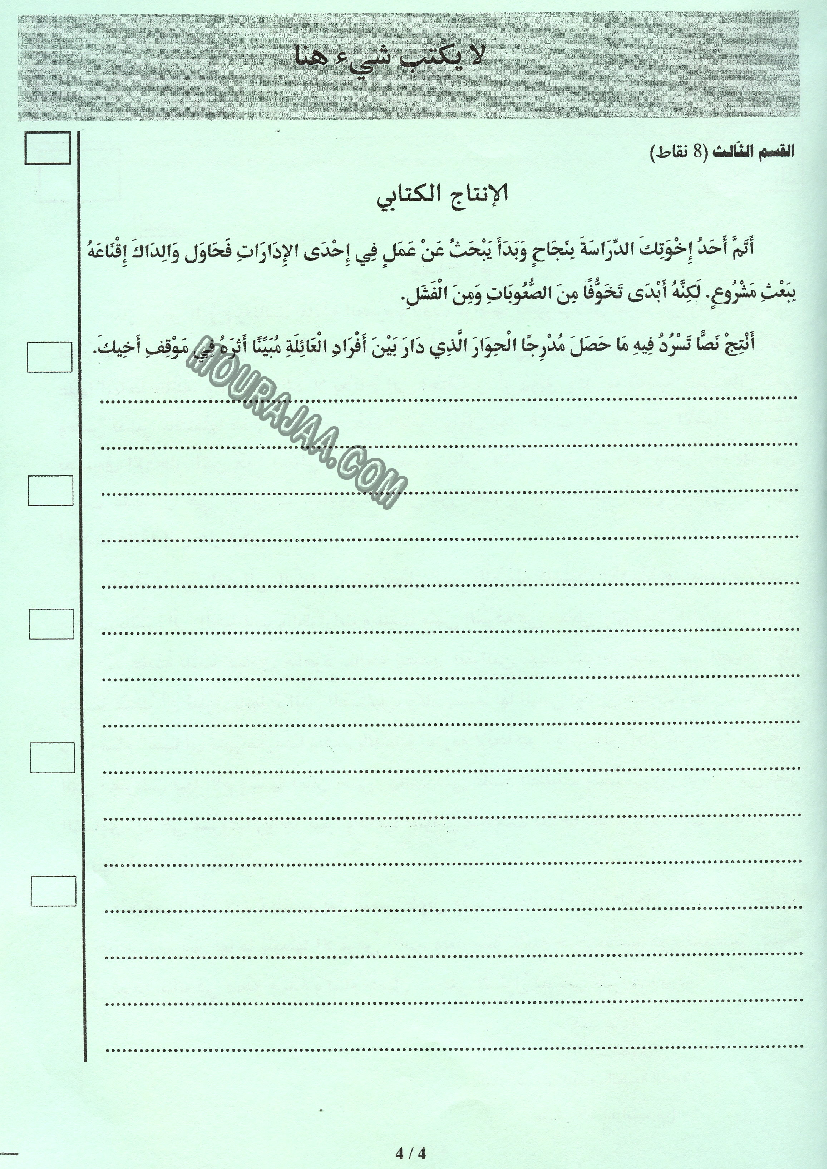 لا يكتب شيء هنا
القسم الثالث (8 نقاط)
الإنتاج الكتابي
أَتَمَّ أَحَدُ إِخْوَتِكَ الدِّرَاسَةَ بِنَجَاحٍ وَبَدَأَ يَبْحَثُ عَنْ عَمَلٍ فِي إِحْدَى الإِدَارَاتِ فَحَاوَلَ وَالِدَاكَ إِقْنَاعَهُ
بِبَعْثِ مَشْرُوعٍ. لَكِنَّهُ أَبْدَى تَخَوُّفًا مِنَ الصُّعُوبَاتِ وَمِنَ الْفَشَلِ.
أَنْتِجْ نَصًّا تَسْرُدُ فِيهِ مَا حَصَلَ مُدْرِجًا الْحِوَارَ الَّذِي دَارَ بَيْنَ أَفْرَادِ الْعَائِلَةِ مُبَيِّنًا أَثَرَهُ فِي مَوْقِفِ أَخِيكَ.
HOURAJAA.COM
4 / 4